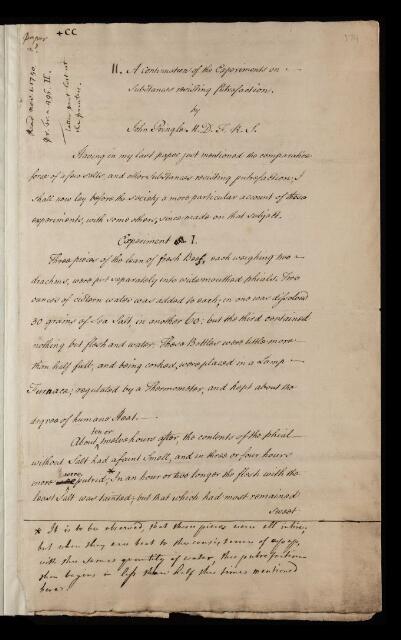 paper
+CC
Read Nov. 1. 1750
II. A Continuation of the Experiments on
Substances resisting Putrefaction.
by
John Pringle M.D. F.R.S.
Having in my last paper just mentioned the comparative
force of a few salts, and other substances resisting putrefaction; I
shall now lay before the society a more particular account of these
experiments, with some others, since made on that subject.
Experiment I.
Three pieces of the lean of fresh Beef, each weighing two
drachms, were put separately into widemouthed phials. Two
ounces of cistern water was added to each; in one was dissolved
30 grains of Sea Salt, in another 60; but the third contained
nothing but flesh and water. These Bottles were little more
than half full, and being corked, were placed in a Lamp
Furnace; regulated by a Thermometer, and kept about the
degree of humane Heat.
ten or
About twelve hours after, the contents of the phial
without Salt had a faint Smell, and in three or four hours
more were putrid;* In an hour or two longer the flesh with the
least Salt was tainted; but that which had most remained
sweet
* It is to be observed, that these pieces were all intire;
but when they are beat to the consistence of
with the same quantity of water, the putrefaction
then begins in less than half the times mentioned
here.